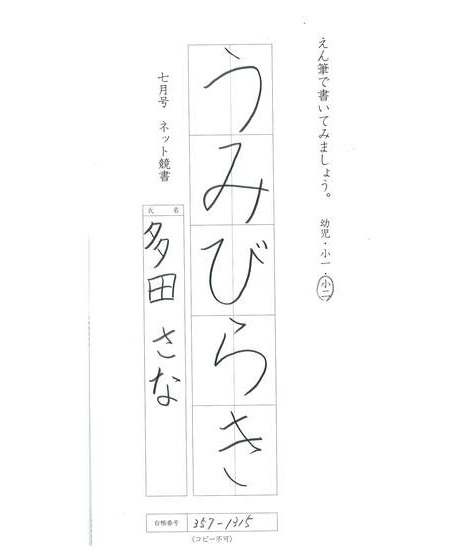 えん筆で書いてみましょう。 幼児・小一・小二
うみびらき
七月号 ネット競書
氏名
多田 さな
台帳番号 357-1315
(コピー不可)